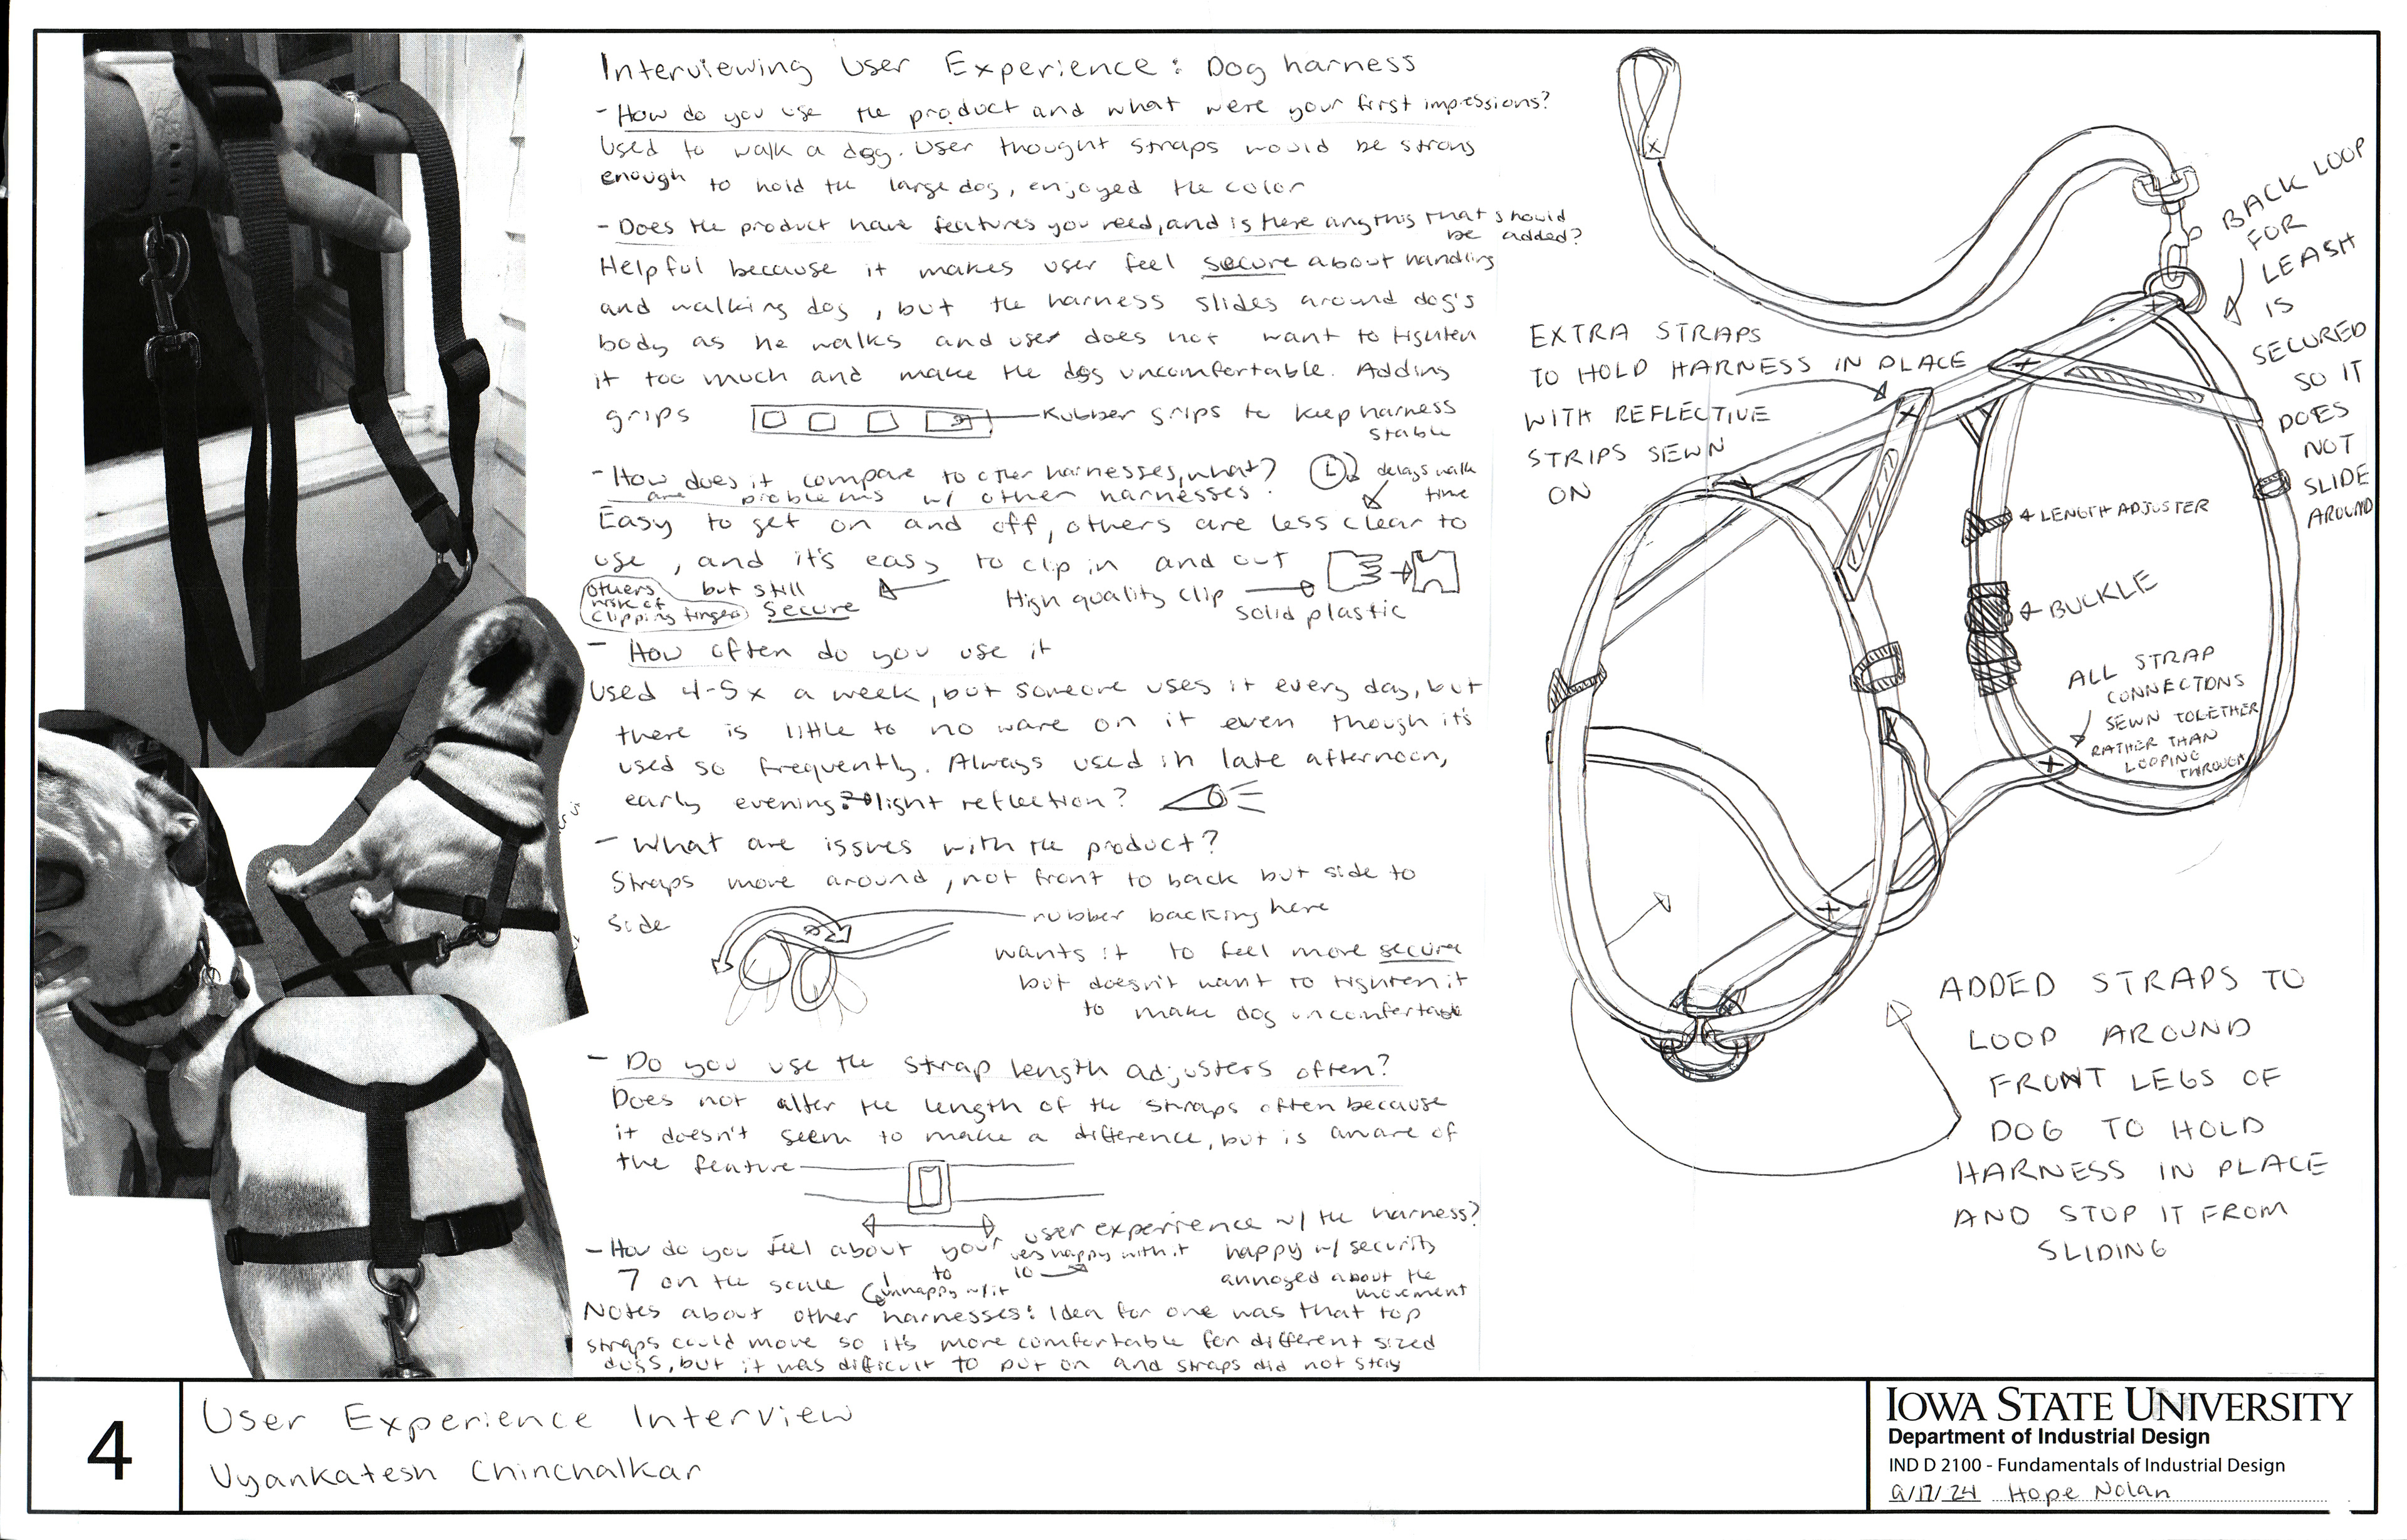 Interviewing User Experience: Dog harness
- How do you use the product and what were your first impressions?
Used to walk a dog. User thought straps would be strong
enough to hold the large dog, enjoyed the color
- Does the product have features you need, and is there anything that should
be added?
Helpful because it makes user feel secure about handling
and walking dog, but the harness slides around dog's
body as he walks and user does not want to tighten
it too much and make the dog uncomfortable. Adding
grips
Rubber grips to keep harness
stable
- How does it compare to other harnesses, what?
are problems w/ other harnesses.
delays walk
time
Easy to get on and off, others are less clear to
use, and it's easy to clip in and out
but still
secure
others
risk of
clipping fingers
High quality clip
solid plastic
- How often do you use it
Used 4-5x a week, but someone uses it every day, but
there is little to no ware on it even though it's
used so frequently. Always used in late afternoon,
early evening. light reflection?
- What are issues with the product?
Straps move around, not front to back but side to
side
rubber backing here
wants it to feel more secure
but doesn't want to tighten it
to make dog uncomfortable
- Do you use the strap length adjusters often?
Does not alter the length of the straps often because
it doesn't seem to make a difference, but is aware of
the feature
- How do you feel about your user experience w/ the harness?
7 on the scale
1 to 10
unhappy w/it
very happy with it
happy w/ security
annoyed about the
movement
Notes about other harnesses: Idea for one was that top
straps could move so it's more comfortable for different sized
dogs, but it was difficult to put on and straps did not stay
BACK LOOP
FOR
LEASH
IS
SECURED
SO IT
DOES
NOT
SLIDE
AROUND
EXTRA STRAPS
TO HOLD HARNESS IN PLACE
WITH REFLECTIVE
STRIPS SEWN
ON
LENGTH ADJUSTER
BUCKLE
ALL STRAP
CONNECTONS
SEWN TOGETHER
RATHER THAN
LOOPING
THROUGH
ADDED STRAPS TO
LOOP AROUND
FRONT LEGS OF
DOG TO HOLD
HARNESS IN PLACE
AND STOP IT FROM
SLIDING
4
User Experience Interview
Vyankatesh Chinchalkar
IOWA STATE UNIVERSITY
Department of Industrial Design
IND D 2100 - Fundamentals of Industrial Design
9/17/24 Hope Nolan